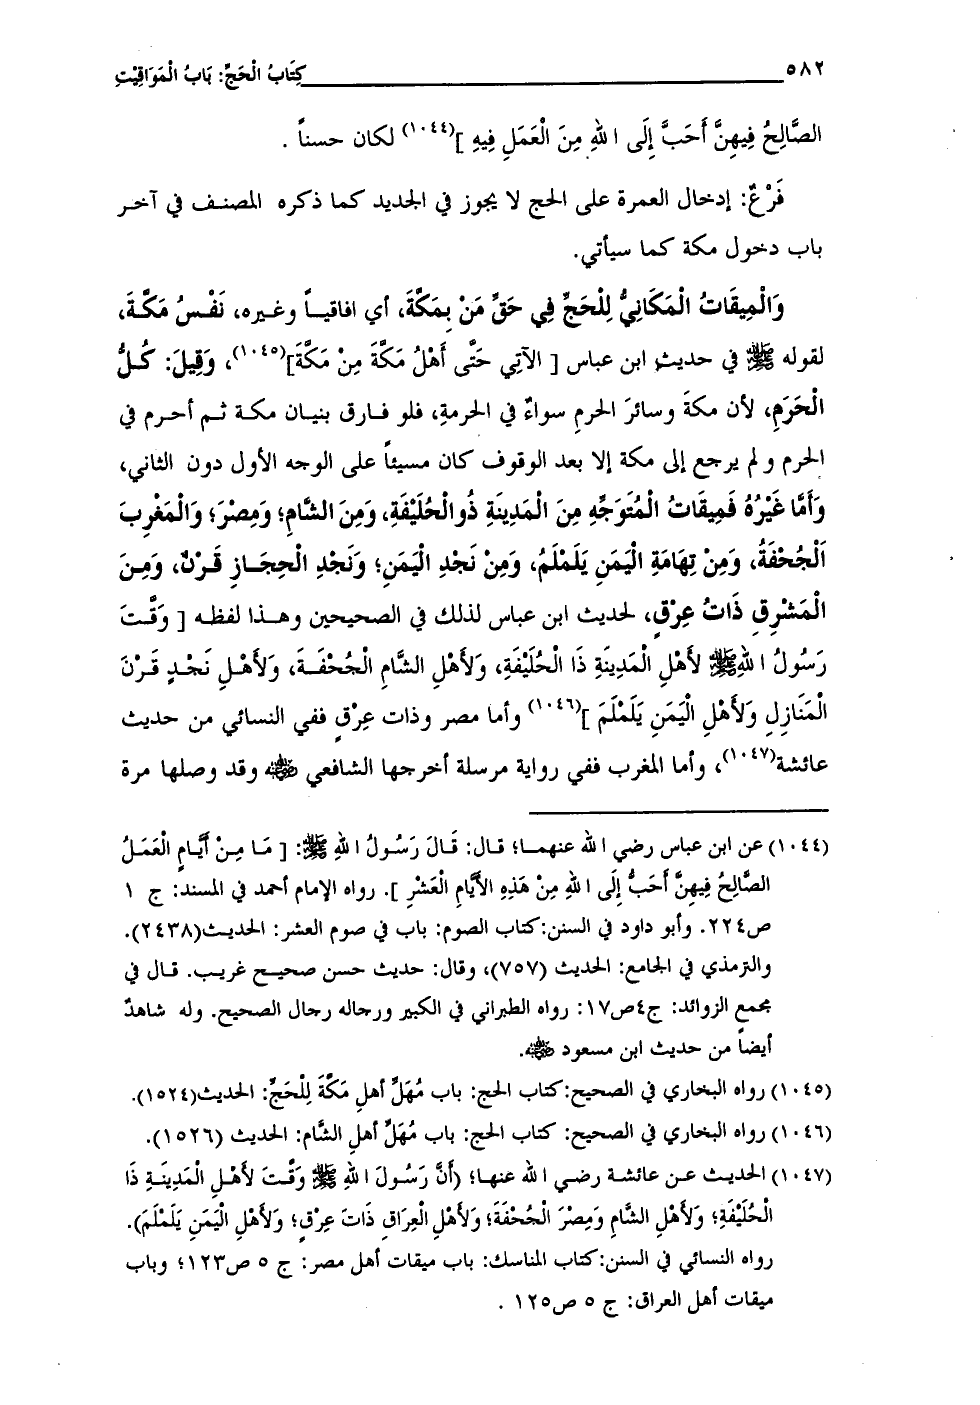 ٥٨٢ كِتَابُ الْحَجِّ: بَابُ الْمَوَاقِيْتِ
الصَّالِحُ فِيهِنَّ أَحَبَّ إِلَى اللهِ مِنَ الْعَمَلِ فِيهِ ](١٠٤٤) لكان حسناً .
فَرْعٌ: إدخال العمرة على الحج لا يجوز في الجديد كما ذكره المصنف في آخر
باب دخول مكة كما سيأتي.
وَالْمِيقَاتُ الْمَكَانِيُّ لِلْحَجِّ فِي حَقِّ مَنْ بِمَكَّةَ، أي افاقيـاً وغـيره، نَفْـسُ مَكَّـةَ،
لقوله ﷺ في حديث ابن عباس [ الآتِي حَتَّى أَهْلُ مَكَّةَ مِنْ مَكَّةَ](١٠٤٥)، وَقِيلَ: كُـلُّ
الْحَرَمِ، لأن مكةَ وسائرَ الحرمِ سواءٌ في الحرمةِ، فلو فـارق بنيـان مكـة ثـم أحـرم في
الحرم ولم يرجع إلى مكة إلا بعد الوقوف كان مسيئاً على الوجه الأول دون الثاني،
وَأَمَّا غَيْرُهُ فَمِيقَاتُ الْمُتَوَجِّهِ مِنَ الْمَدِينَةِ ذُوالْحُلَيْفَةِ، وَمِنَ الشَّامِ؛ وَمِصْرَ؛ وَالْمَغْرِبِ
اَلْجُحْفَةُ، وَمِنْ تِهَامَةِ الْيَمَنِ يَلَمْلَمُ، وَمِنْ نَجْدِ الْيَمَنِ؛ وَنَجْدِ الْحِجَـازِ قَـرْنٌ، وَمِـنَ
الْمَشْرِقِ ذَاتُ عِرْقٍ، لحديث ابن عباس لذلك في الصحيحين وهـذا لفظـه [ وَقَّـتَ
رَسُولُ اللهِ ﷺ لأَهْلِ الْمَدِينَةِ ذَا الْحُلَيْفَةِ، وَلأَهْلِ الشَّامِ الْجُحْفَـةَ، وَلأَهْـلِ نَجْـدٍ قَـرْنَ
الْمَنَازِلِ وَلأَهْلِ الْيَمَنِ يَلَمْلَمَ ](١٠٤٦) وأما مصر وذات عِرْقٍ ففي النسائي من حديث
عائشة(١٠٤٧)، وأما المغرب ففي رواية مرسلة أخرجها الشافعي ﷺ وقد وصلها مرة
(١٠٤٤) عن ابن عباس رضي الله عنهمـا؛ قـال: قَـالَ رَسُـولُ اللهِ ﷺ: [ مَـا مِـنْ أَيَّـامٍ الْعَمَـلُ
الصَّالِحُ فِيهِنَّ أَحَبُّ إِلَى اللهِ مِنْ هَذِهِ الأَيَّامِ الْعَشْرِ ]. رواه الإمام أحمد في المسند: ج ١
ص٢٢٤. وأبو داود في السنن:كتاب الصوم: باب في صوم العشر: الحديث(٢٤٣٨).
والترمذي في الجامع: الحديث (٧٥٧)، وقال: حديث حسن صحيـح غريـب. قـال في
مجمع الزوائد: ج٤ص١٧: رواه الطبراني في الكبير ورجاله رجال الصحيح. وله شاهدٌ
أيضاً من حديث ابن مسعود ﷺ.
(١٠٤٥) رواه البخاري في الصحيح:كتاب الحج: باب مُهَلِّ أهلِ مَكَّةَ لِلْحَجِّ: الحديث(١٥٢٤).
(١٠٤٦) رواه البخاري في الصحيح: كتاب الحج: باب مُهَلِّ أهلِ الشَّام: الحديث (١٥٢٦).
(١٠٤٧) الحديـث عـن عائشـة رضـي الله عنهـا؛ (أَنَّ رَسُـولَ اللهِ ﷺ وَقَّـتَ لأَهْـلِ الْمَدِينَـةِ ذَا
الْحُلَيْفَةِ؛ وَلأَهْلِ الشَّامِ وَمِصْرَ الْجُحْفَةَ؛ وَلأَهْلِ الْعِرَاقِ ذَاتَ عِرْقٍ؛ وَلأَهْلِ الْيَمَنِ يَلَمْلَمَ).
رواه النسائي في السنن:كتاب المناسك: باب ميقات أهل مصر: ج ٥ ص١٢٣؛ وباب
ميقات أهل العراق: ج ٥ ص١٢٥ .